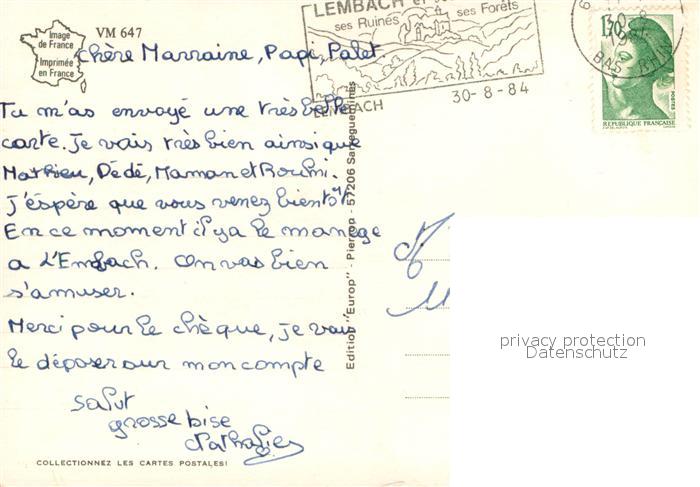 Image
de France
Imprimée
en France
VM 647
LEMBACH et
ses Ruines ses Forêts
LEMBACH 30-8-84
1,70
30-8
19
BAS RHIN
POSTES
REPUBLIQUE FRANÇAISE
Chère Marraine, Papi, Palet.
Tu m'as envoyé une très belle
carte. Je vais très bien ainsi que
Mathieu, Dédé, Maman et Roulmi.
J'éspère que vous venez bientôt
En ce moment il y a le manège
a L'Embach. On vas bien
s'amuser.
Merci pour le chèque, je vais
le déposer sur mon compte
salut
grosse bise
Nathalie
Edition "Europ" - Pierron - 57206 Sarreguemines
COLLECTIONNEZ LES CARTES POSTALES!
privacy protection
Datenschutz